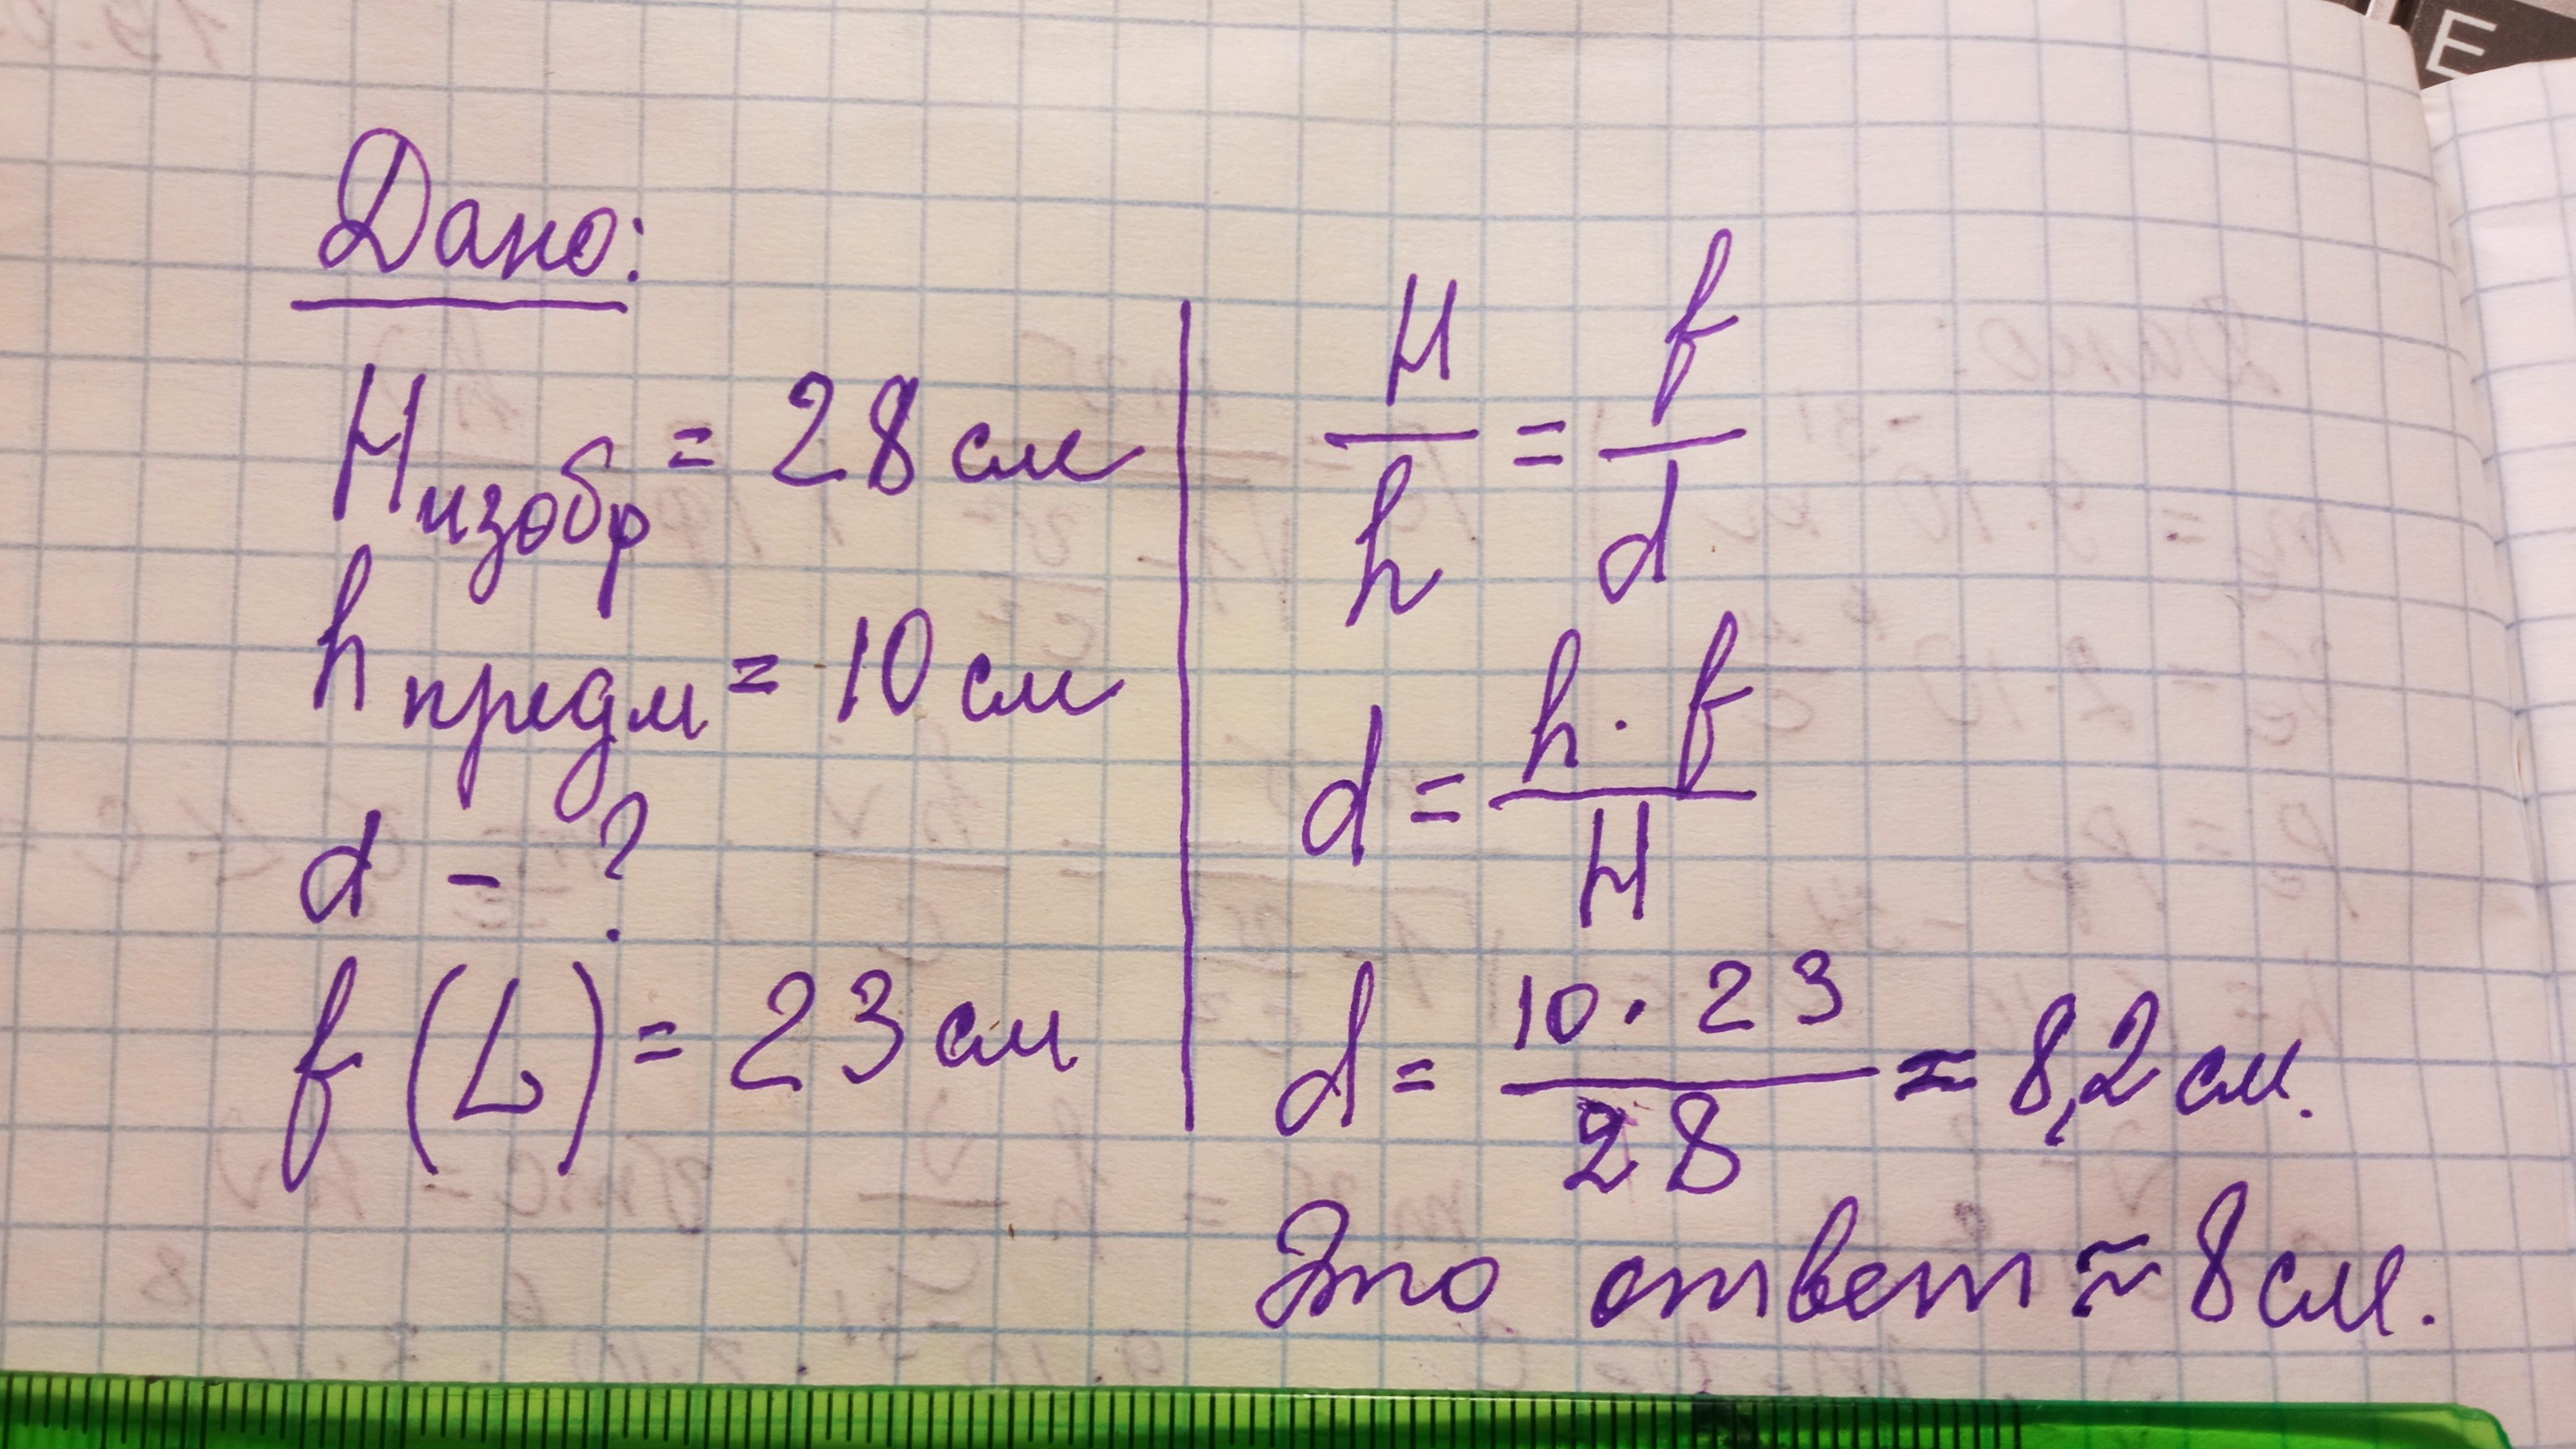 Дано:
Hизобр = 28 см
hпредм = 10 см
d - ?
f (L) = 23 см
H/h = f/d
d = h · f / H
d = 10 · 23 / 28 ≈ 8,2 см.
Это ответ ≈ 8 см.
E